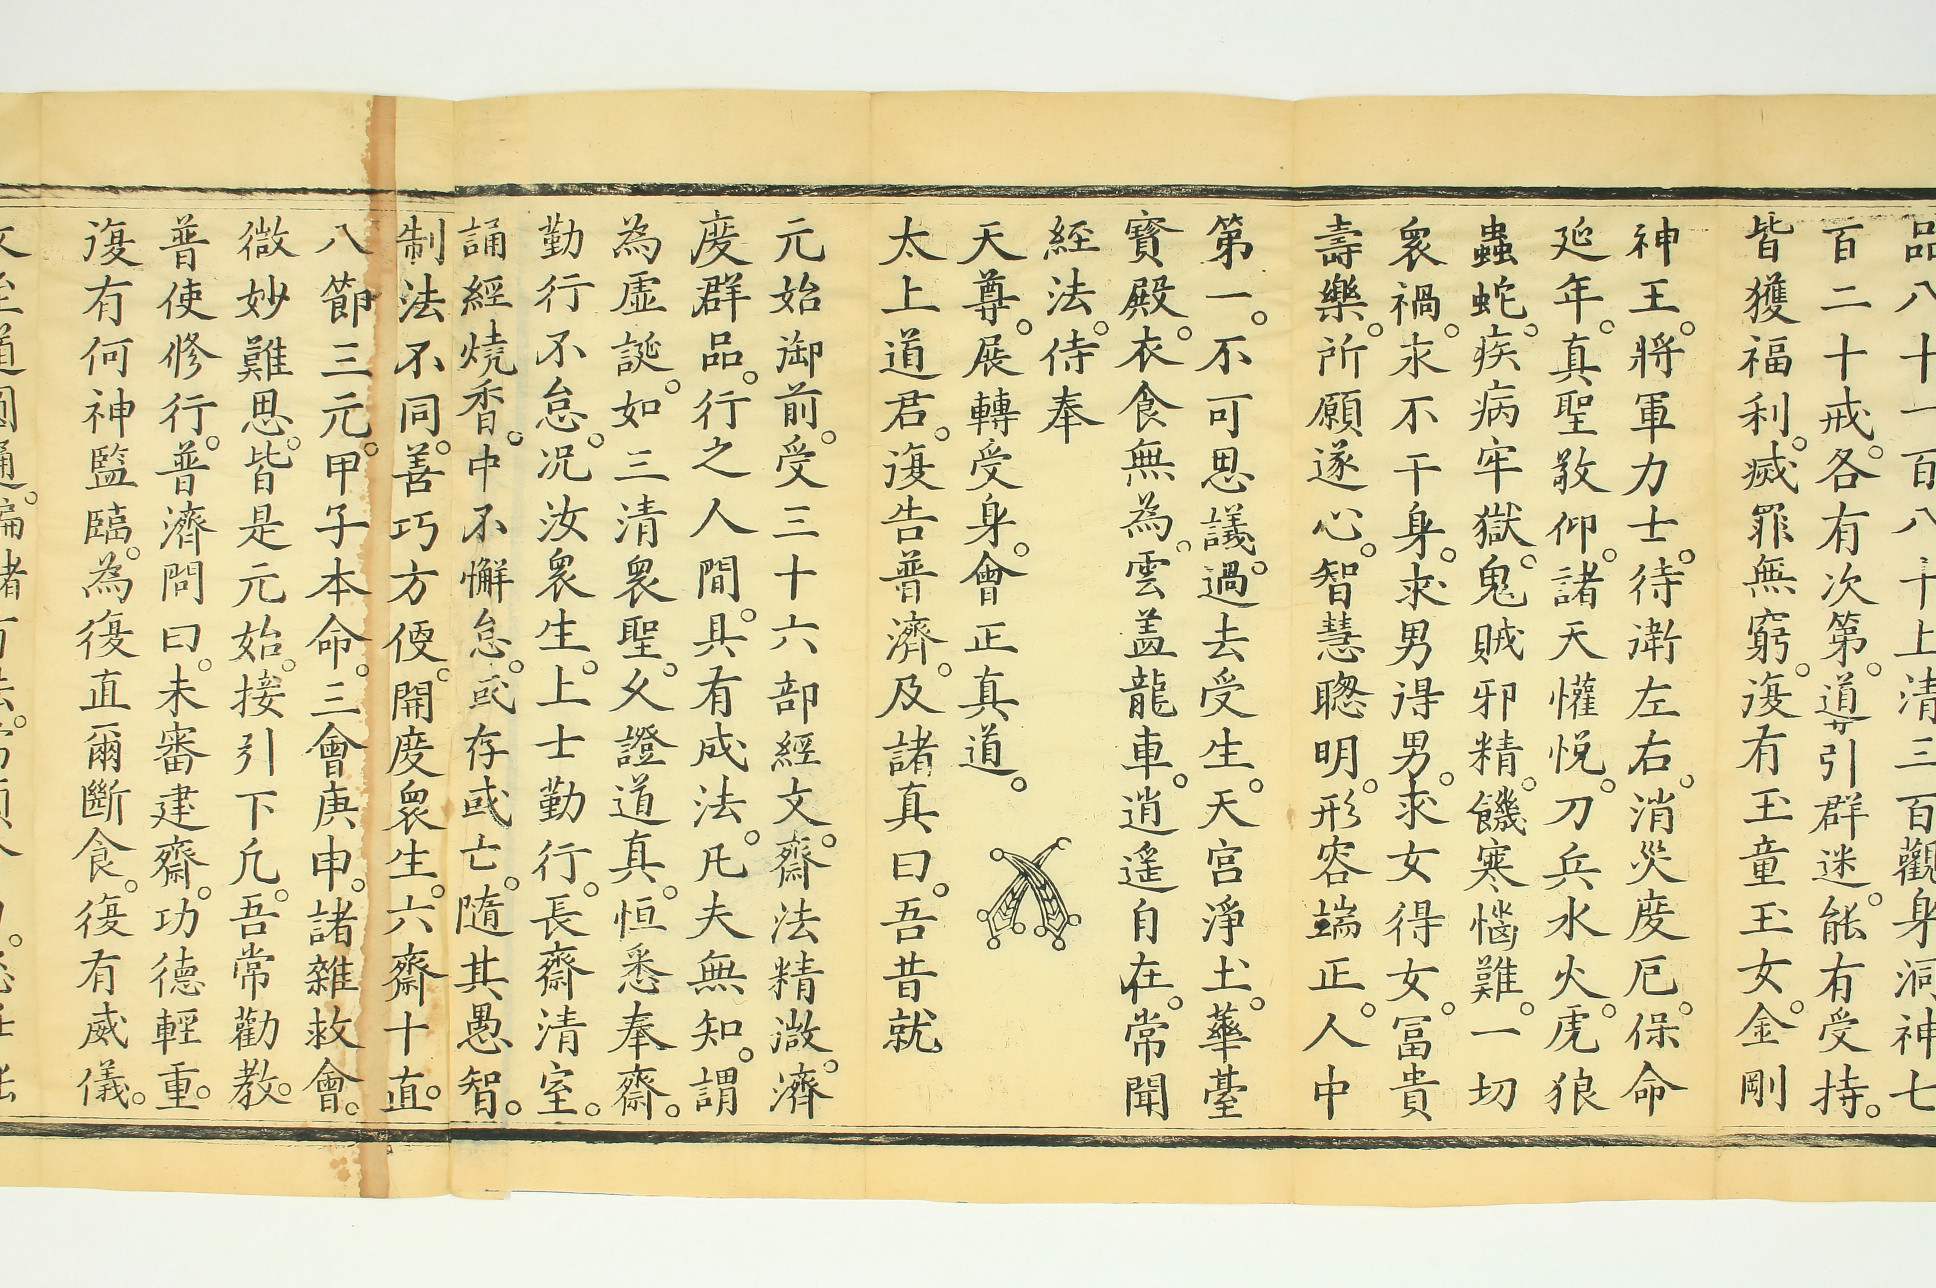 品八十一百八十上清三百觀身洞神七
百二十戒。各有次第。道引群迷。能有受持。
皆獲福利。滅罪無窮。復有玉童玉女。金剛
神王。將軍力士。待衛左右。消災度厄。保命
延年。真聖敬仰。諸天懽悅。刀兵水火。虎狼
蟲蛇。疾病牢獄。鬼賊邪精。饑寒惱難。一切
衆禍。永不干身。求男得男。求女得女。冨貴
壽樂。所願遂心。智慧聰明。形容端正。人中
第一。不可思議。過去受生。天宮淨土。華臺
寳殿。衣食無為。雲盖龍車。逍遥自在。常聞
經法。侍奉
天尊。展轉受身。會正真道。
太上道君。復告普濟。及諸真曰。吾昔就
元始御前。受三十六部經文。齋法精㣲。濟
度群品。行之人間。具有成法。凡夫無知。謂
為虛誕。如三清衆聖。久證道真。恒悉奉齋。
勤行不怠。况汝衆生。上士勤行。長齋清室。
誦經燒香。中不懈怠。或存或亡。隨其愚智。
制法不同。善巧方便。開度衆生。六齋十直。
八節三元。甲子本命。三會庚申。諸雜救會。
㣲妙難思。皆是元始。接引下凡。吾常勸教。
普使修行。普濟問曰。未審建齋。功德輕重。
復有何神監臨。為復直爾斷食。復有威儀。